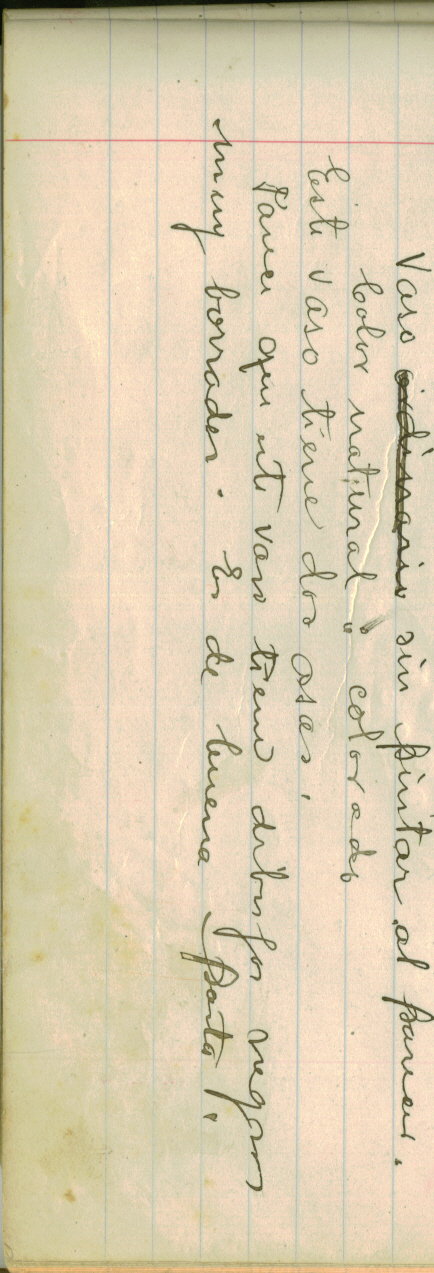 Vaso ordinario sin pintar al parecer.
Color natural " colorado
Este vaso tiene dos asas.
Parece que este vaso tiene dibujos negros
muy borrados. Es de buena pasta.